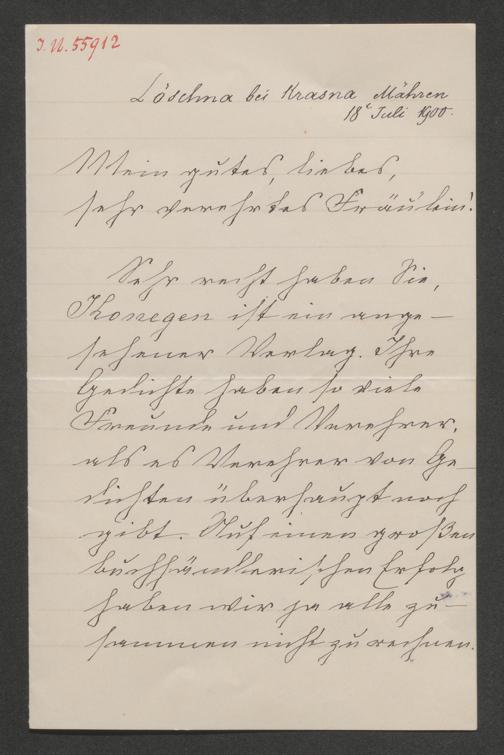 J.N. 55912
Löschna bei Krasna Mähren
18ᵗ Juli 1900.
Mein gutes, liebes,
sehr verehrtes Fräulein!
Sehr recht haben Sie,
Konegen ist ein ange-
sehener Verlag. Ihre
Gedichte haben so viele
Freunde und Verehrer,
als es Verehrer von Ge-
dichten überhaupt noch
gibt. Auf einen großen
buchhändlerischen Erfolg
haben wir ja alle zu-
sammen nicht zu rechnen.